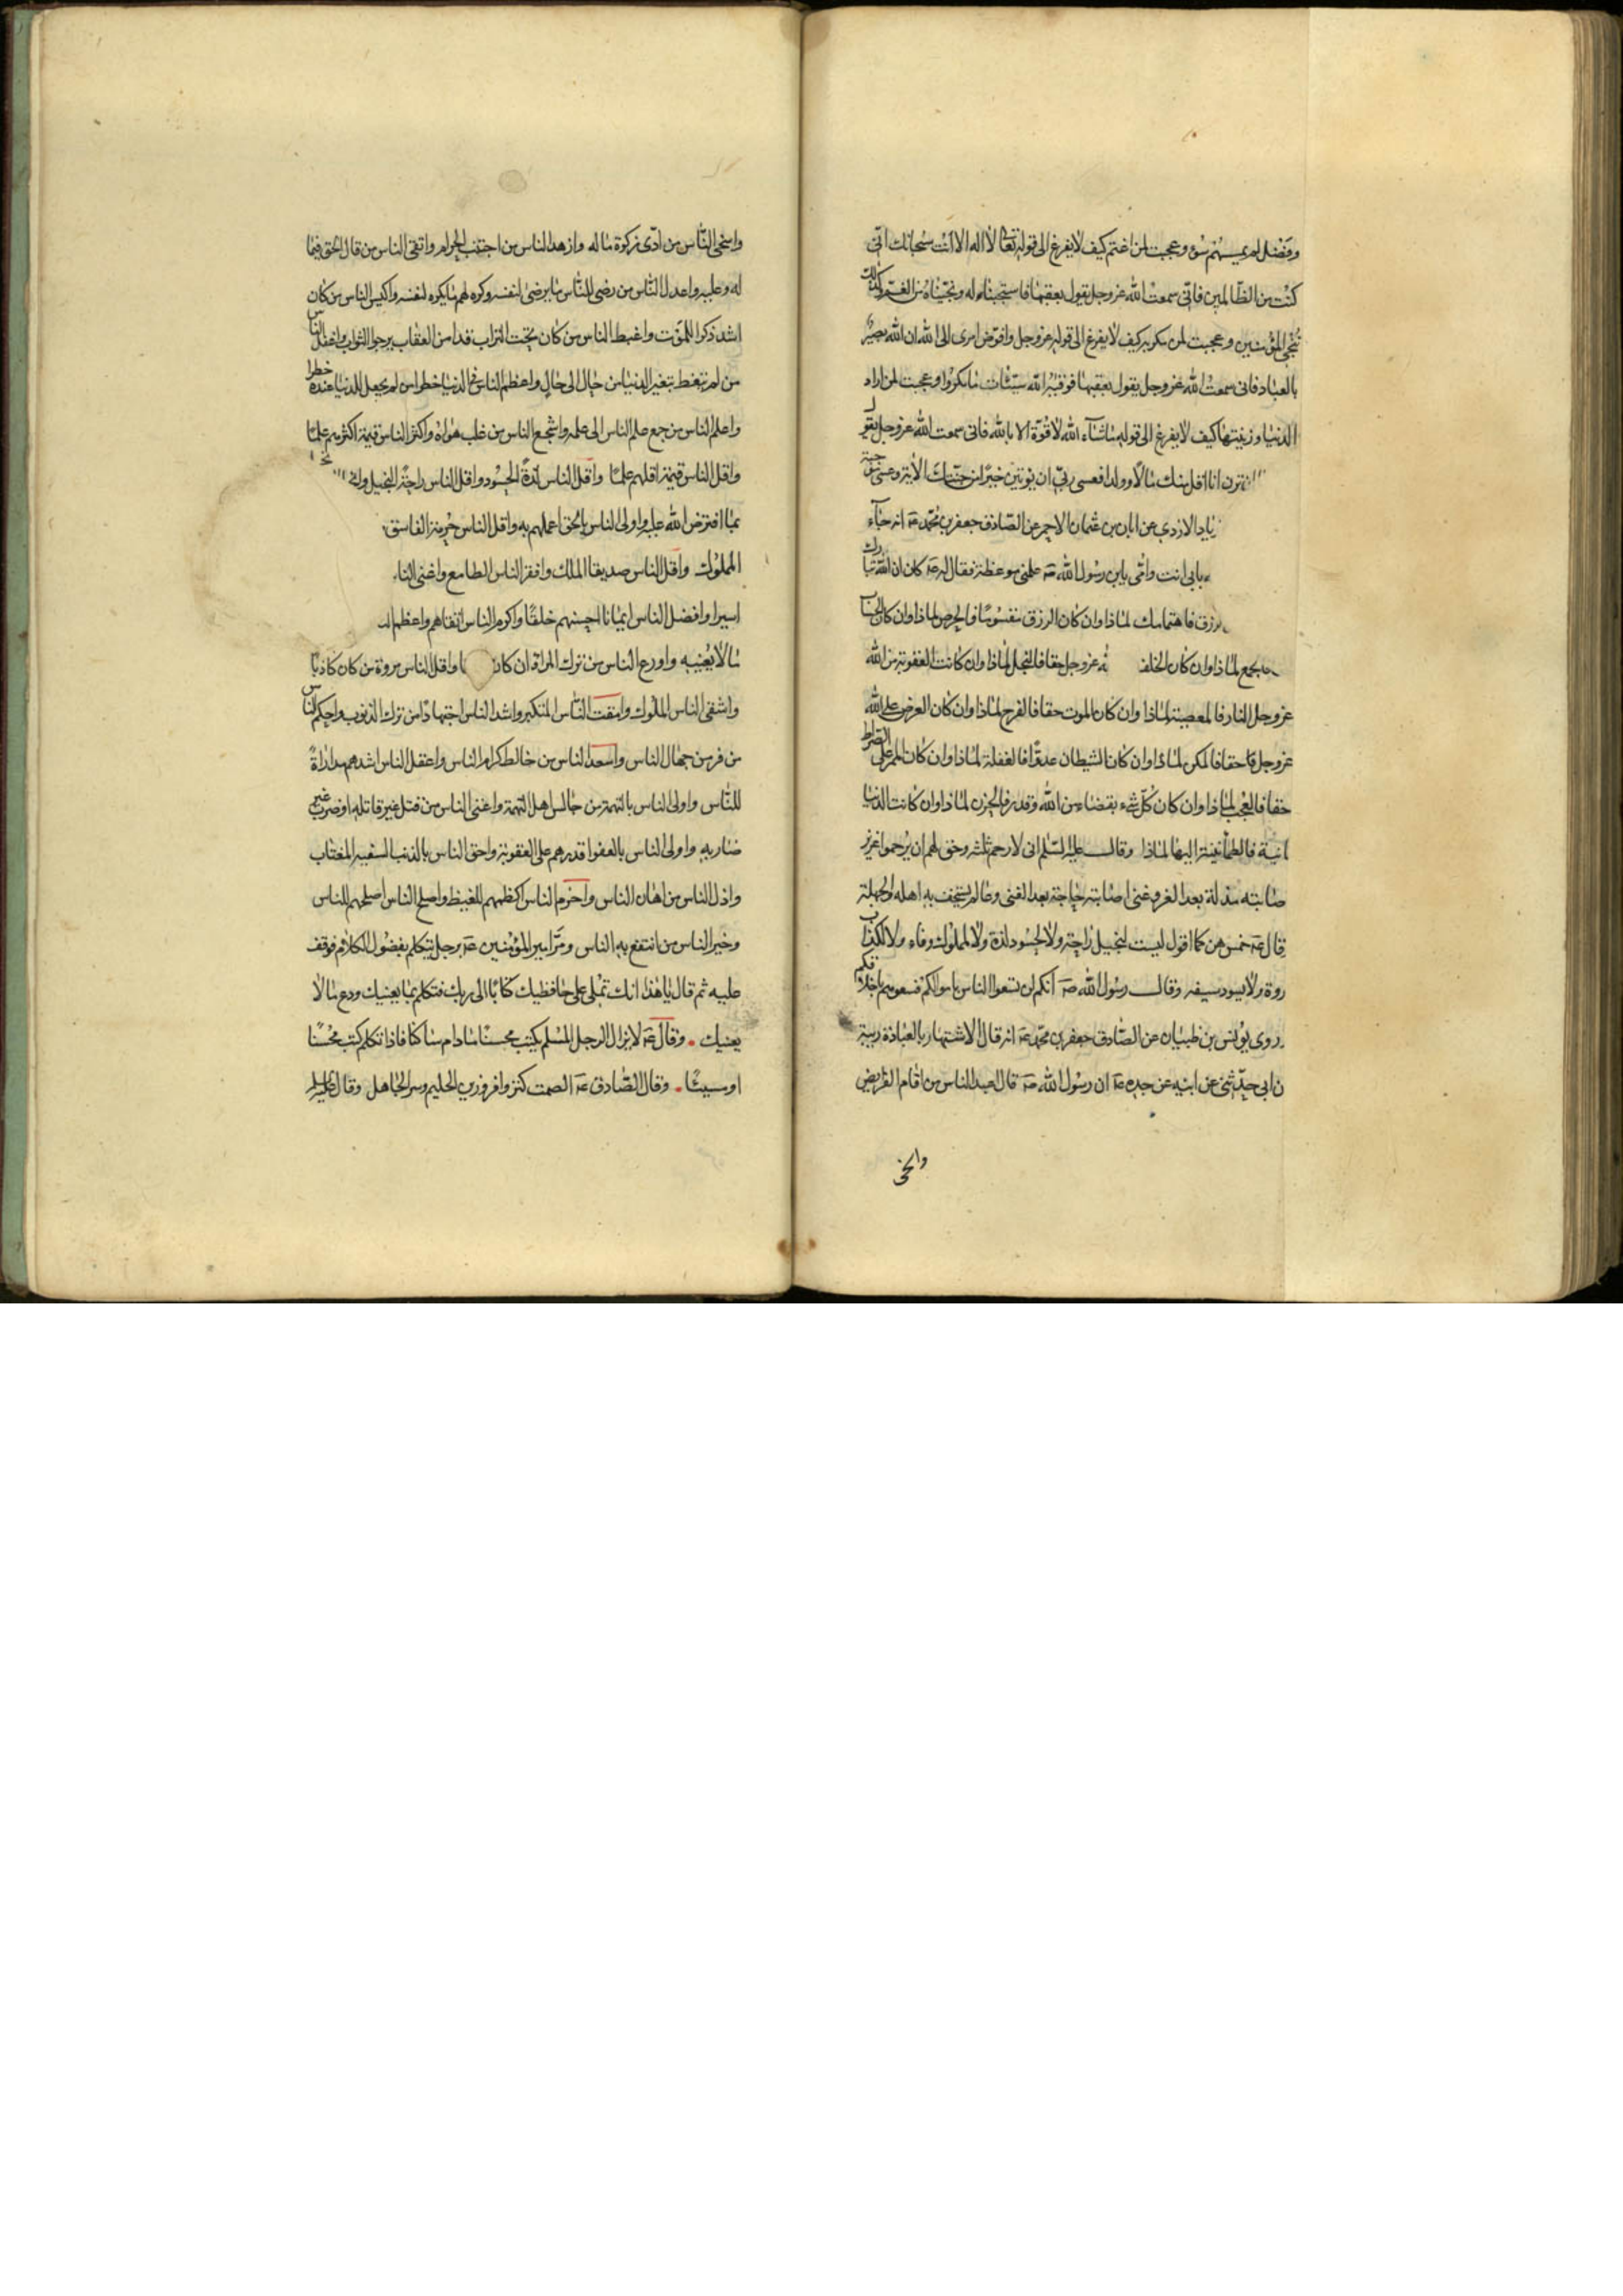 وفضل لم يمسسهم سوء وعجبت لمن اغتم كيف لا يفرغ الى قوله تعالى لا اله الا انت سبحانك انى
كنت من الظالمين فانى سمعت الله عزوجل يقول بعقبها فاستجبنا له ونجيناه من الغم وكذلك
ننجى المؤمنين وعجبت لمن مكر به كيف لا يفرغ الى قوله عزوجل وافوض امرى الى الله ان الله بصير
بالعباد فانى سمعت الله عزوجل يقول بعقبها فوقيه الله سيئات ما مكروا وعجبت لمن اراد
الدنيا وزينتها كيف لا يفرغ الى قوله ما شاء الله لا قوة الا بالله فانى سمعت الله عزوجل يقول
ترن انا اقل منك مالا وولدا فعسى ربى ان يؤتين خيرا من جنتك الاية وعسى موجبة
زياد الازدى عن ابان بن عثمان الاحمر عن الصادق جعفر بن محمد عه انه جاء
بابى انت وامى يابن رسول الله صه علمنى موعظة فقال له عه كان ان الله تبارك
رزق فاهتمامك لماذا وان كان الرزق مقسوما فالحرص لماذا وان كان الحساب
فالجمع لماذا وان كان الخلف الله عزوجل حقا فالبخل لماذا وان كانت العقوبة من الله
عزوجل النار فالمعصية لماذا وان كان الموت حقا فالفرح لماذا وان كان العرض على الله
عزوجل حقا فالمكر لماذا وان كان الشيطان عدوا فالغفلة لماذا وان كان الممر على الصراط
حقا فالعجب لماذا وان كان كل شىء بقضاء من الله وقدره فالحزن لماذا وان كانت الدنيا
انية فالطمأنينة اليها لماذا وقال عليه السلم انى لارحم ثلثه وحق لهم ان يرحموا عزيز
صابته مذلة بعد العز وغنى اصابته حاجة بعد الغنى وعالم يستخف به اهله والجهلة
قال عه خمس هن كما اقول ليست لبخيل راحة ولا لحسود لذة ولا لملوك وفاء ولا لكذاب
روة ولا يسود سفيه وقال رسول الله صه انكم لن تسعوا الناس باموالكم فسعوهم باخلاقكم
روى يونس بن ظبيان عن الصادق جعفر بن محمد عه انه قال الاشتهار بالعبادة ريبة
ن ابى حدثنى عن ابيه عن جده عه ان رسول الله صه قال اعبد الناس من اقام الفرايض
واسخى
واسخى الناس من ادى زكوة ماله وازهد الناس من اجتنب الحرام واتقى الناس من قال الحق فيما
له وعليه واعدل الناس من رضى للناس ما يرضى لنفسه وكره لهم ما يكره لنفسه واكيس الناس من كان
اشد ذكرا للموت واغبط الناس من كان تحت التراب قد امن العقاب يرجوا الثواب واغفل الناس
من لم يتعظ بتغير الدنيا من حال الى حال واعظم الناس فى الدنيا خطرا من لم يجعل للدنيا عنده خطرا
واعلم الناس من جمع علم الناس الى علمه واشجع الناس من غلب هواه واكثر الناس قيمة اكثرهم علما
واقل الناس قيمة اقلهم علما واقل الناس لذة الحسود واقل الناس راحة البخيل
بما افترض الله عليه واولى الناس بالحق اعملهم به واقل الناس حرمة الفاسق
المملوك واقل الناس صديقا الملك وافقر الناس الطامع واغنى النا
اسيرا وافضل الناس ايمانا احسنهم خلقا واكرم الناس اتقاهم واعظم
ما لا يعنيه واورع الناس من ترك المراء وان كان واقل الناس مروة من كان كاذبا
واشقى الناس الملوك وامقت الناس المتكبر واشد الناس اجتهادا من ترك الذنوب واحكم الناس
من فر من جهال الناس واسعد الناس من خالط كرام الناس واعقل الناس اشدهم مداراة
للناس واولى الناس بالتهمة من جالس اهل التهمة واعتى الناس من قتل غير قاتله او ضرب غير
ضاربه واولى الناس بالعفو اقدرهم على العقوبة واحق الناس بالذنب السفيه المغتاب
واذل الناس من اهان الناس واحزم الناس اكظمهم للغيظ واصلح الناس اصلحهم للناس
وخير الناس من انتفع به الناس ومر امير المؤمنين عه برجل يتكلم بفضول الكلام فوقف
عليه ثم قال يا هذا انك تملى على حافظيك كتابا الى ربك فتكلم بما يعنيك ودع ما لا
يعنيك وقال عه لا يزال الرجل المسلم يكتب محسنا ما دام ساكتا فاذا تكلم كتب محسنا
او مسيئا وقال الصادق عه الصمت كنز وافر وزين الحليم وستر الجاهل وقال عليه السلم